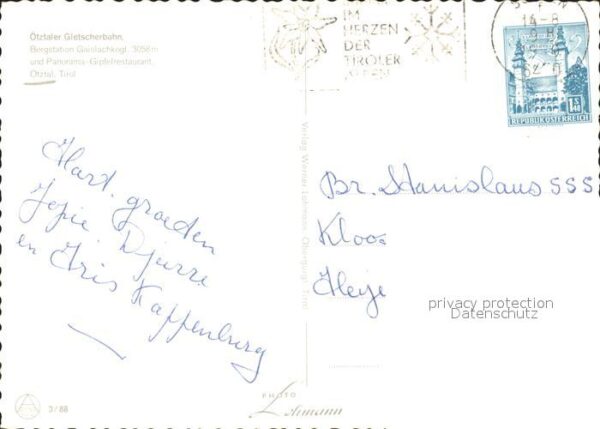 Ötztaler Gletscherbahn,
Bergstation Gaislachkogl, 3058m
und Panorama-Gipfelrestaurant,
Ötztal, Tirol
IM
HERZEN
DER
TIROLER
ALPEN
14-8
1.S
40
REPUBLIK ÖSTERREICH
Hart. groeten
Jopie Djurre
en Iris Kappenburg
Verlag Werner Lohmann, Obergurgl, Tirol
Br. Stanislaus SSS
Kloos
Heije
privacy protection
Datenschutz
3/88
PHOTO
Lohmann